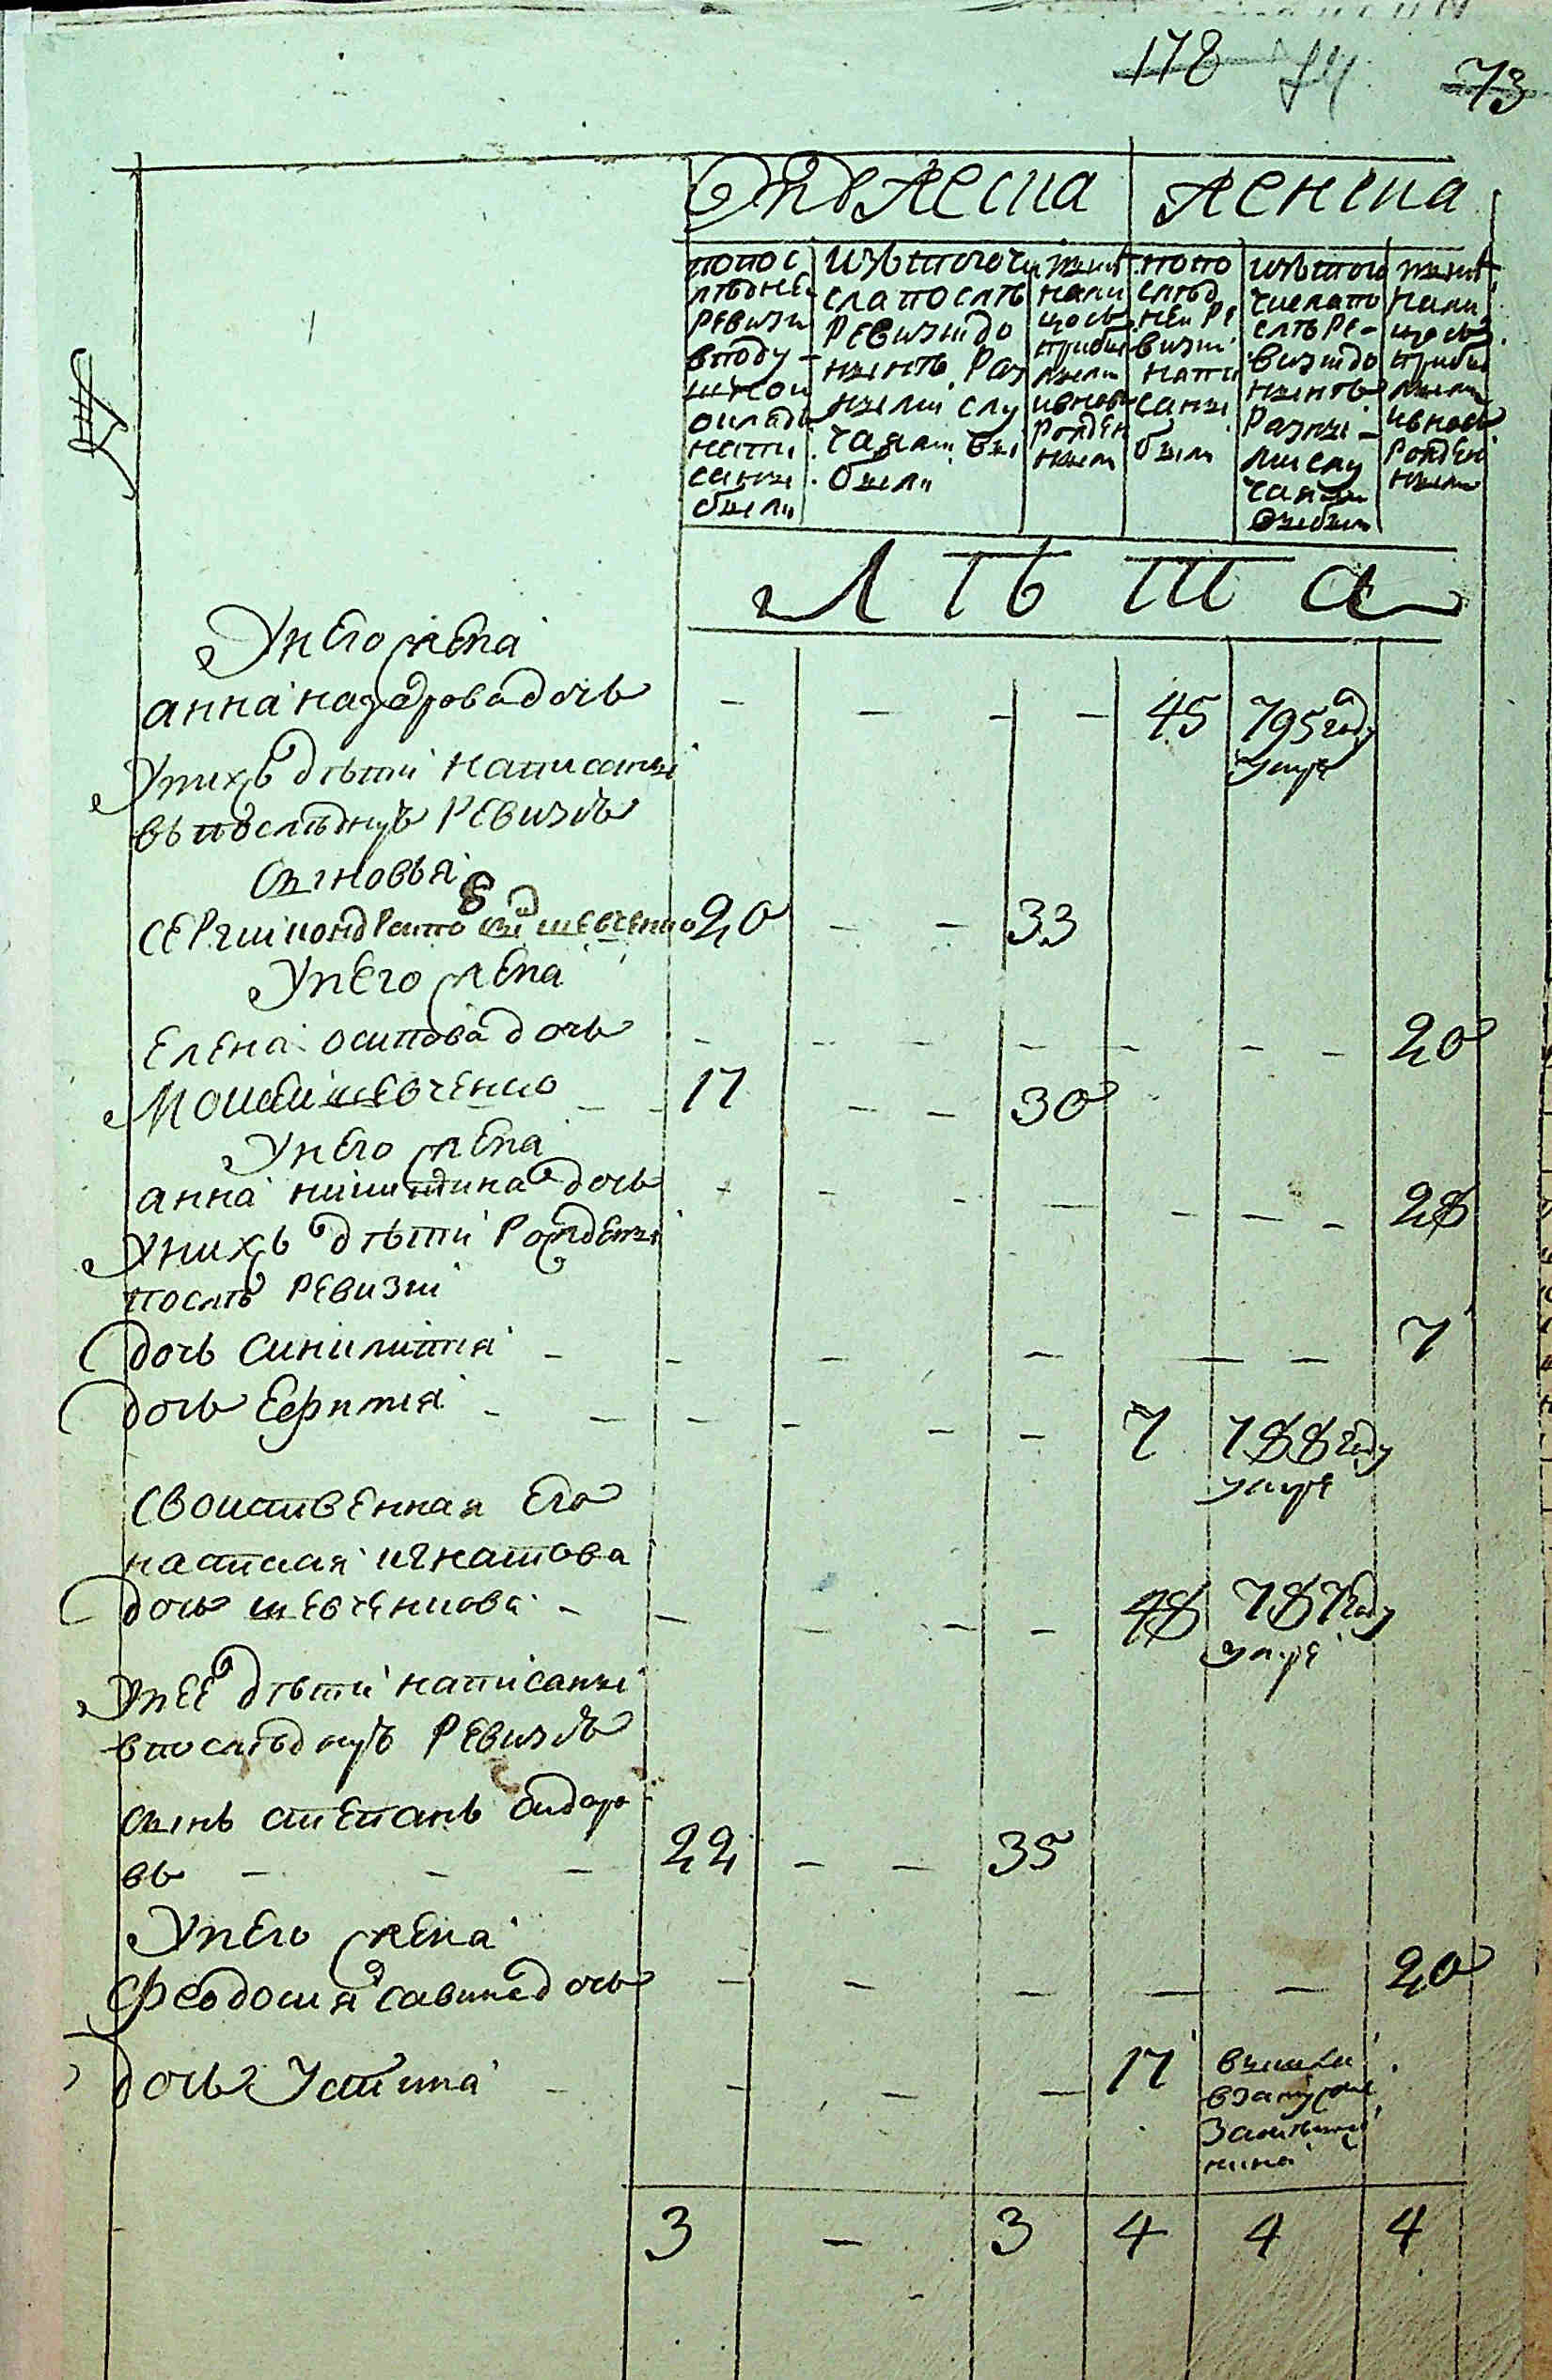 178 74 73
Мужеска Женска
по пос
лѣдней
ревизи
в поду-
шном
окладѣ
напи
саны
были
изъ того чи
сла послѣ
ревизіи до
нынѣ раз
ными слу
чаями вы
были
нынѣ
нали
цо съ
прибы
лыми
и вновь
рожден
ными
по по
слѣд
ней ре
визіи
напи
саны
были
изъ того
числа по
слѣ ре-
визіи до
нынѣ
разны-
ми слу
чаями
выбыли
нынѣ
нали
цо съ
прибы
лыми
и вновь
рожден
ными
Лѣта
У него жена
анна назарова дочь - - - - 45 795 году умре
У нихъ дѣти написаны
въ послѣднуѣ ревизіѣ
сыновья
сергии кондратовъ сын шевченко 20 - - 33
У него жена
елена осипова дочь - - - - - - - 20
Моисеи шевченко - - 17 - - 30
У него жена
анна никитина дочь - - - - - - - 28
У нихъ дѣти рождены
послѣ ревизіи
дочь синклития - - - - - - 7
дочь ефимия - - - - - - 7 788 году умре
своиственная его
настасия игнатова
дочь шевченкова - - - - - 48 787 году умре
У нее дѣти написаны
в послѣднуѣ ревизіѣ
сынъ степанъ сидоро
въ - - - 22 - - 35
У него жена
феодосия савина дочь - - - - - 20
дочь Устина - - - - 17 вышла
в замуже
3 - 3 4 4 4